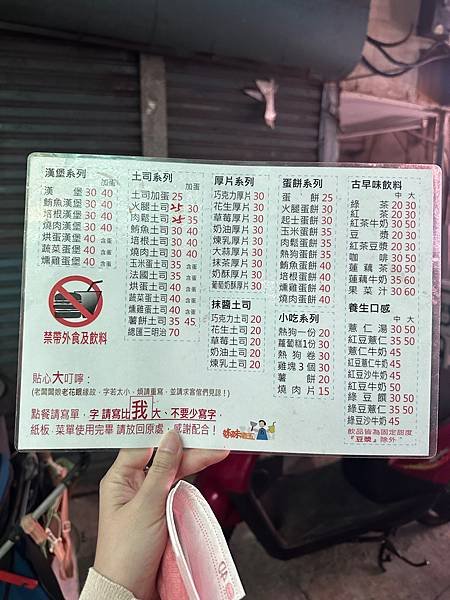 漢堡系列 加蛋
漢堡 30 40
鮪魚漢堡 30 40
培根漢堡 30 40
燒肉漢堡 30 40
烘蛋漢堡 40 含蛋
蔬菜蛋堡 40 含蛋
燻雞蛋堡 40 含蛋
禁帶外食及飲料
土司系列 加蛋
土司加蛋 25
火腿土司 25 30
肉鬆土司 25 35
鮪魚土司 30 40
培根土司 30 40
燒肉土司 30 40
玉米蛋土司 35 含蛋
法國土司 35 含蛋
烘蛋土司 40 含蛋
蔬菜蛋土司 40 含蛋
燻雞蛋土司 40 含蛋
薯餅土司 35 45
總匯三明治 70
厚片系列
巧克力厚片 30
花生厚片 30
草莓厚片 30
奶油厚片 30
煉乳厚片 30
大蒜厚片 30
抹茶厚片 30
奶酥厚片 30
葡萄奶酥厚片 30
抹醬土司
巧克力土司 20
花生土司 20
草莓土司 20
奶油土司 20
煉乳土司 20
蛋餅系列
蛋餅 25
火腿蛋餅 30
起士蛋餅 30
玉米蛋餅 35
肉鬆蛋餅 35
熱狗蛋餅 35
鮪魚蛋餅 40
培根蛋餅 40
燻雞蛋餅 40
燒肉蛋餅 40
小吃系列
熱狗一份 20
蘿蔔糕1份 30
熱狗卷 30
雞塊3個 30
薯餅 20
燒肉片 15
古早味飲料
中 大
綠茶 20 30
紅茶 20 30
紅茶牛奶 30 50
豆漿 20 30
紅茶豆漿 20 30
咖啡 30 50
蓮藕茶 30 50
蓮藕牛奶 35 60
果菜汁 30 60
養生口感
中 大
薏仁湯 30 50
紅豆薏仁 35 50
薏仁牛奶 45
紅豆牛奶 45
紅豆沙牛奶 45
紅豆薏仁牛奶 45
綠豆饌 30 50
綠豆薏仁 35 50
綠豆沙牛奶 45
飲品皆為固定甜度
『豆漿』除外
貼心大叮嚀：
(老闆闆娘老花眼緣故，字若太小，煩請重寫，並請求客倌們見諒！)
點餐請寫單，字請寫比我大、不要少寫字，
紙板、菜單使用完畢 請放回原處，感謝配合！